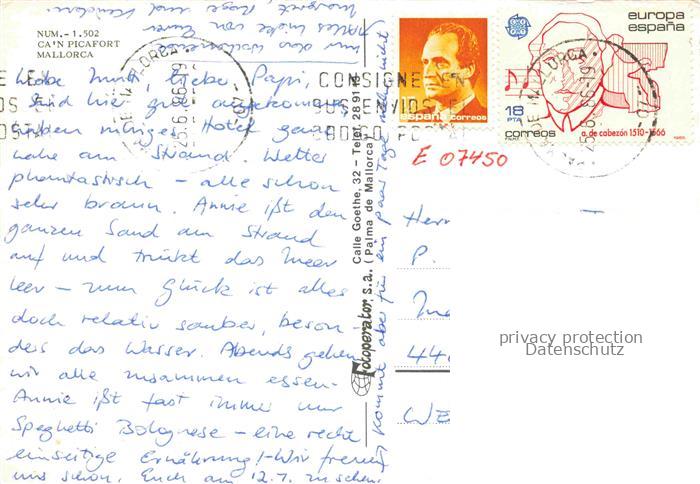 NUM. - 1.502
CA'N PICAFORT
MALLORCA
Liebe Mutti, liebe Papi,
sind hier gut angekommen,
haben ruhiges Hotel ganz
nahe am Strand. Wetter
phantastisch - alle schon
sehr braun. Annie ißt den
ganzen Sand am Strand
auf und trinkt das Meer
leer - zum Glück ist alles
doch relativ sauber, beson-
ders das Wasser. Abends gehen
wir alle zusammen essen -
Annie ißt fast immer nur
Spaghetti Bolognese - eine recht
einseitige Ernährung! Wir freuen
uns schon, Euch am 12.7. zu sehen.
Kommt aber für ein paar Tage
Fotoperator, s.a.
Calle Goethe, 32 - Telef. 289116
(Palma de Mallorca)
CONSIGNE EN
SUS ENVIOS EL
CODIGO POSTAL
25.6.86-19
españa correos
europa
españa
18
PTA
correos
a. de cabezón 1510-1566
F.N.M.T.
1985
MALLORCA
25.6.86-19
E 07450
Herr
P.
44
WE
privacy protection
Datenschutz